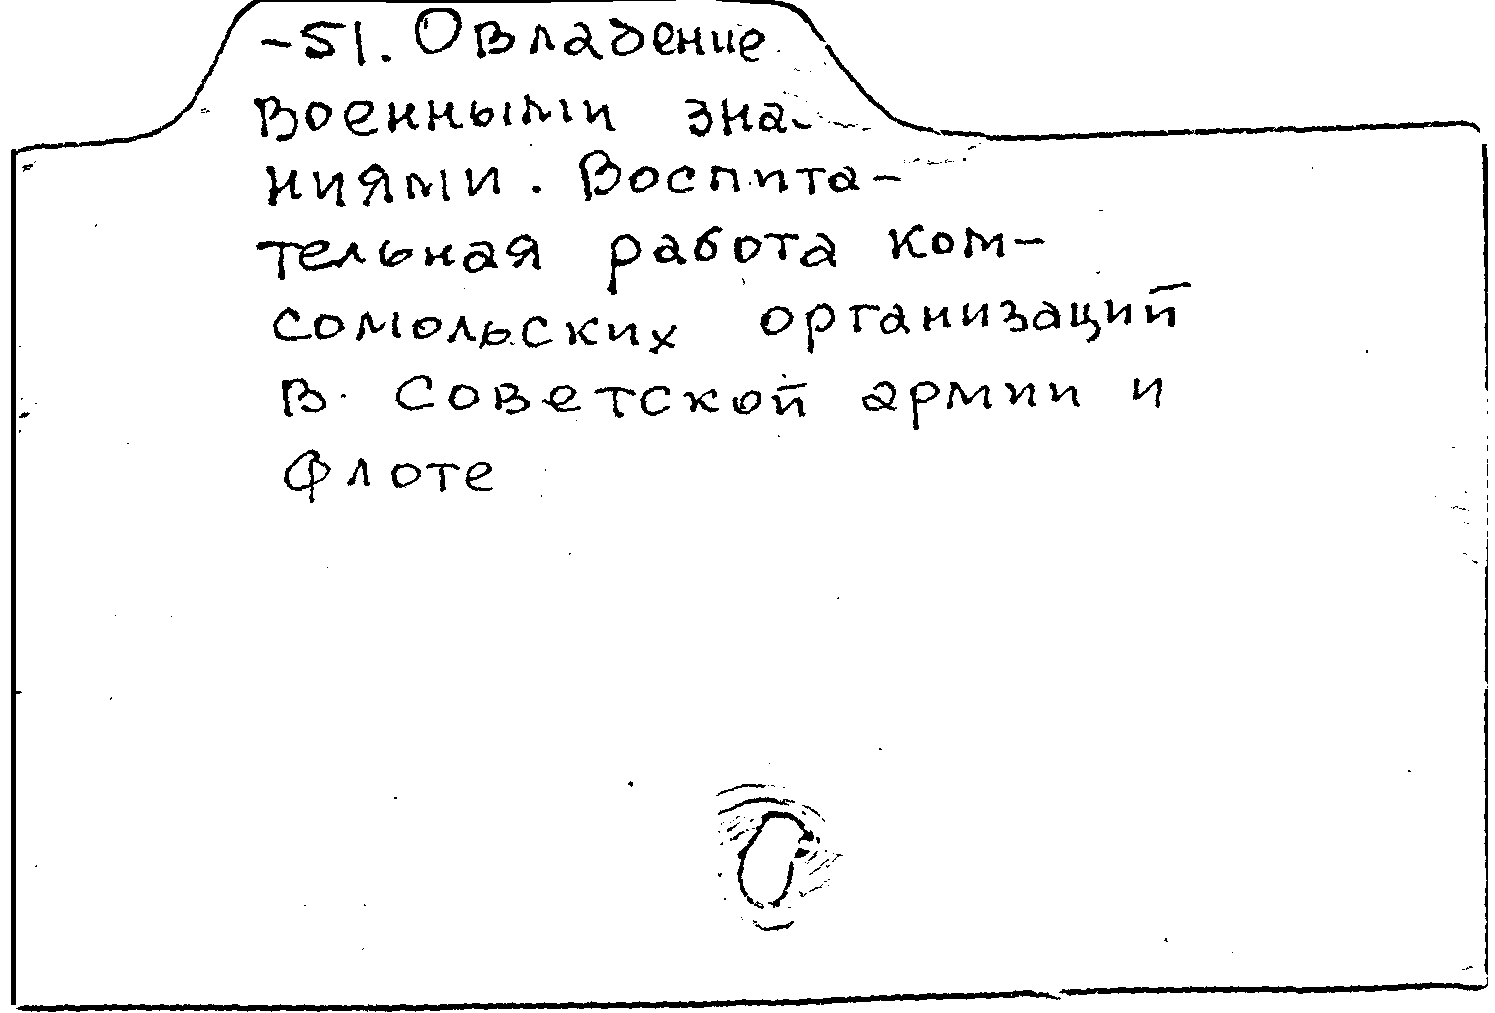 -51. Овладение
военными зна-
ниями. Воспита-
тельная работа ком-
сомольских организаций
в Советской армии и
флоте